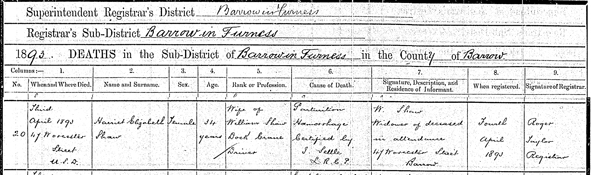 Superintendent Registrar's District Barrow in Furness
Registrar's Sub-District Barrow in Furness
1893. DEATHS in the Sub-District of Barrow in Furness in the County of Barrow
Columns:— 1. 2. 3. 4. 5. 6. 7. 8. 9.
No. When and Where Died. Name and Surname. Sex. Age. Rank or Profession. Cause of Death. Signature, Description, and Residence of Informant. When registered. Signature of Registrar.
20
Third
April 1893
47 Worcester
Street
U.S.D.
Harriet Elizabeth
Shaw
Female
34
years
Wife of
William Shaw
Dock Crane
Driver
Haemorrhage
Certified by
J. Settle
L.R.C.P.
W. Shaw
Widower of deceased
in attendance
47 Worcester Street
Barrow
Fourth
April
1893
Roger
Taylor
Registrar